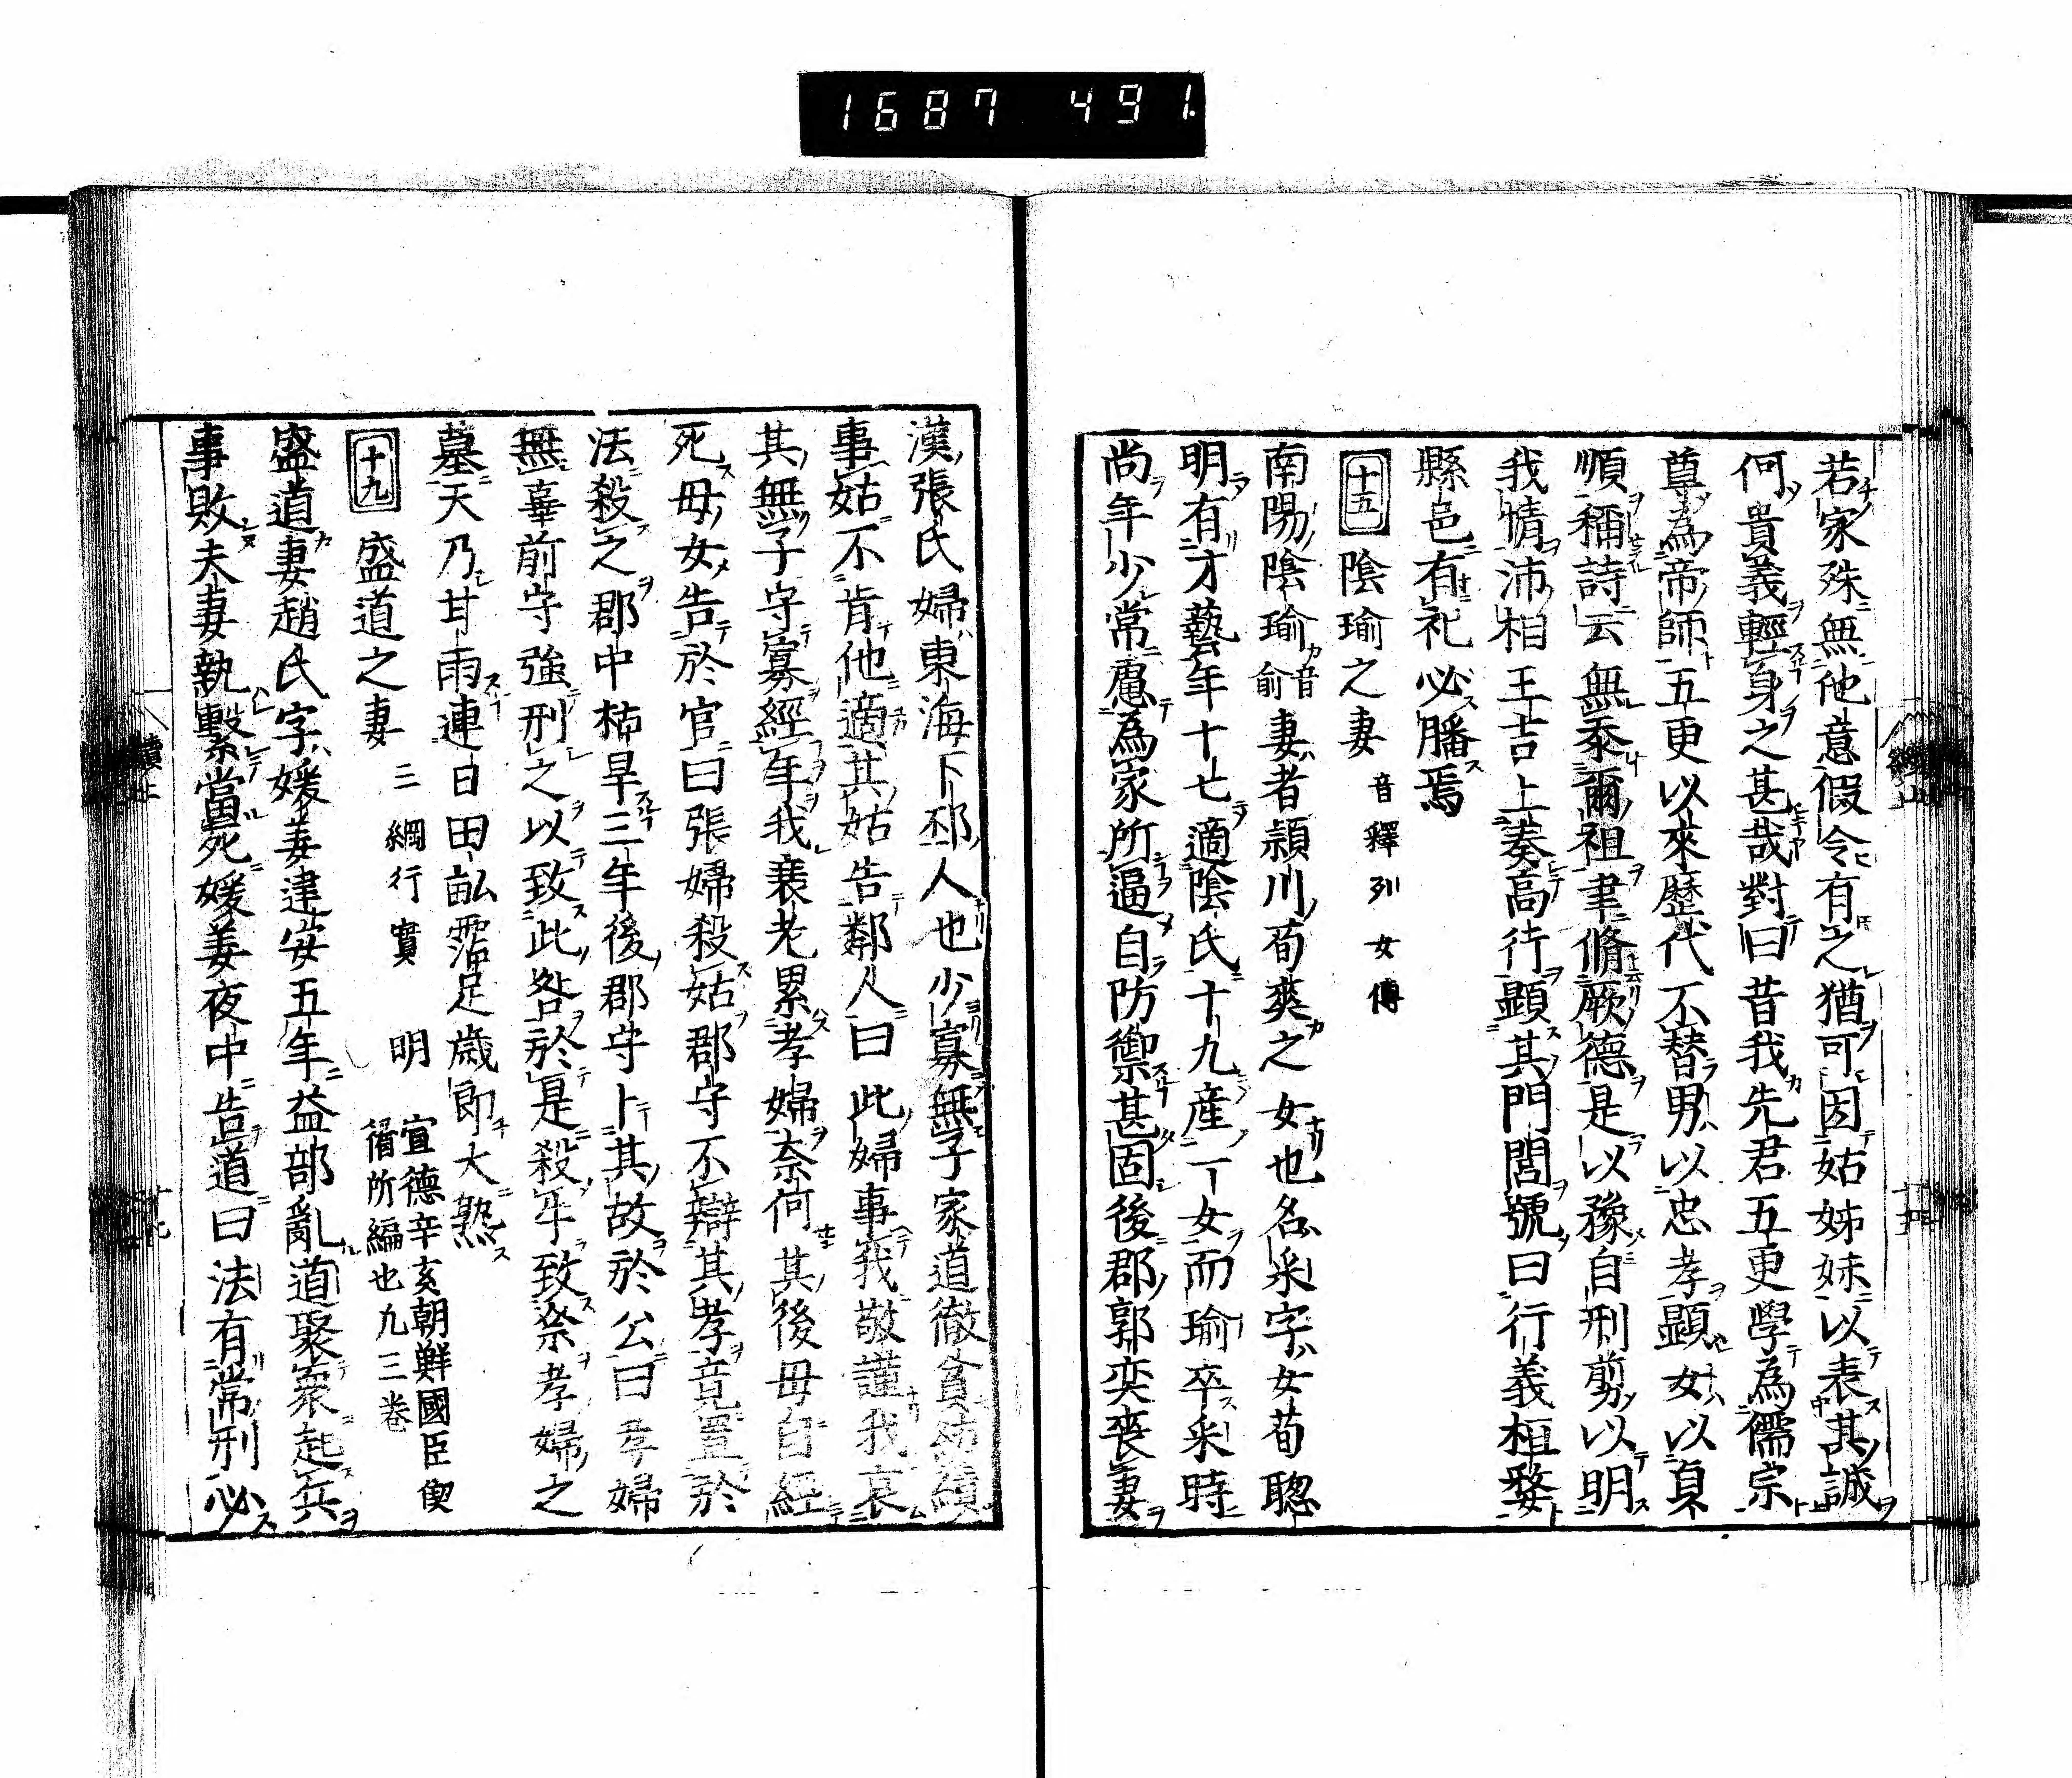 1687 491.
若家殊無他意假令有之猶可因姑姊妹以表其誠
何貴義輕身之甚哉對曰昔我先君五更學為儒宗
尊為帝師五更以來歷代不替男以忠孝顯女以貞
順稱詩云無忝爾祖聿脩厥德是以豫自刑剪以明
我情沛相王吉上奏高行顯其門閭號曰行義桓嫠
縣邑有祀必膰焉
十五 陰瑜之妻 音釋列女傳
南陽陰瑜音俞妻者潁川荀爽之女也名采字女荀聰
明有才藝年十七適陰氏十九產一女而瑜卒采時
尚年少常慮為家所逼自防禦甚固後郡郭奕喪妻
漢張氏婦東海下邳人也少寡無子家道徹貧紡績
事姑不肯他適其姑告鄰人曰此婦事我敬謹我哀
其無子守寡經年我衰老累孝婦奈何其後母自經
死母女告於官曰張婦殺姑郡守不辯其孝竟置於
法殺之郡中枯旱三年後郡守卜其故於公曰孝婦
無辜前守強刑之以致此咎於是殺牛致祭孝婦之
墓天乃甘雨連日田畝霑足歲即大熟
十九 盛道之妻 三綱行實 明 宣德辛亥朝鮮國臣偰循所編也凡三卷
盛道妻趙氏字媛姜建安五年益部亂道聚衆起兵
事敗夫妻執繫當死媛姜夜中告道曰法有常刑必